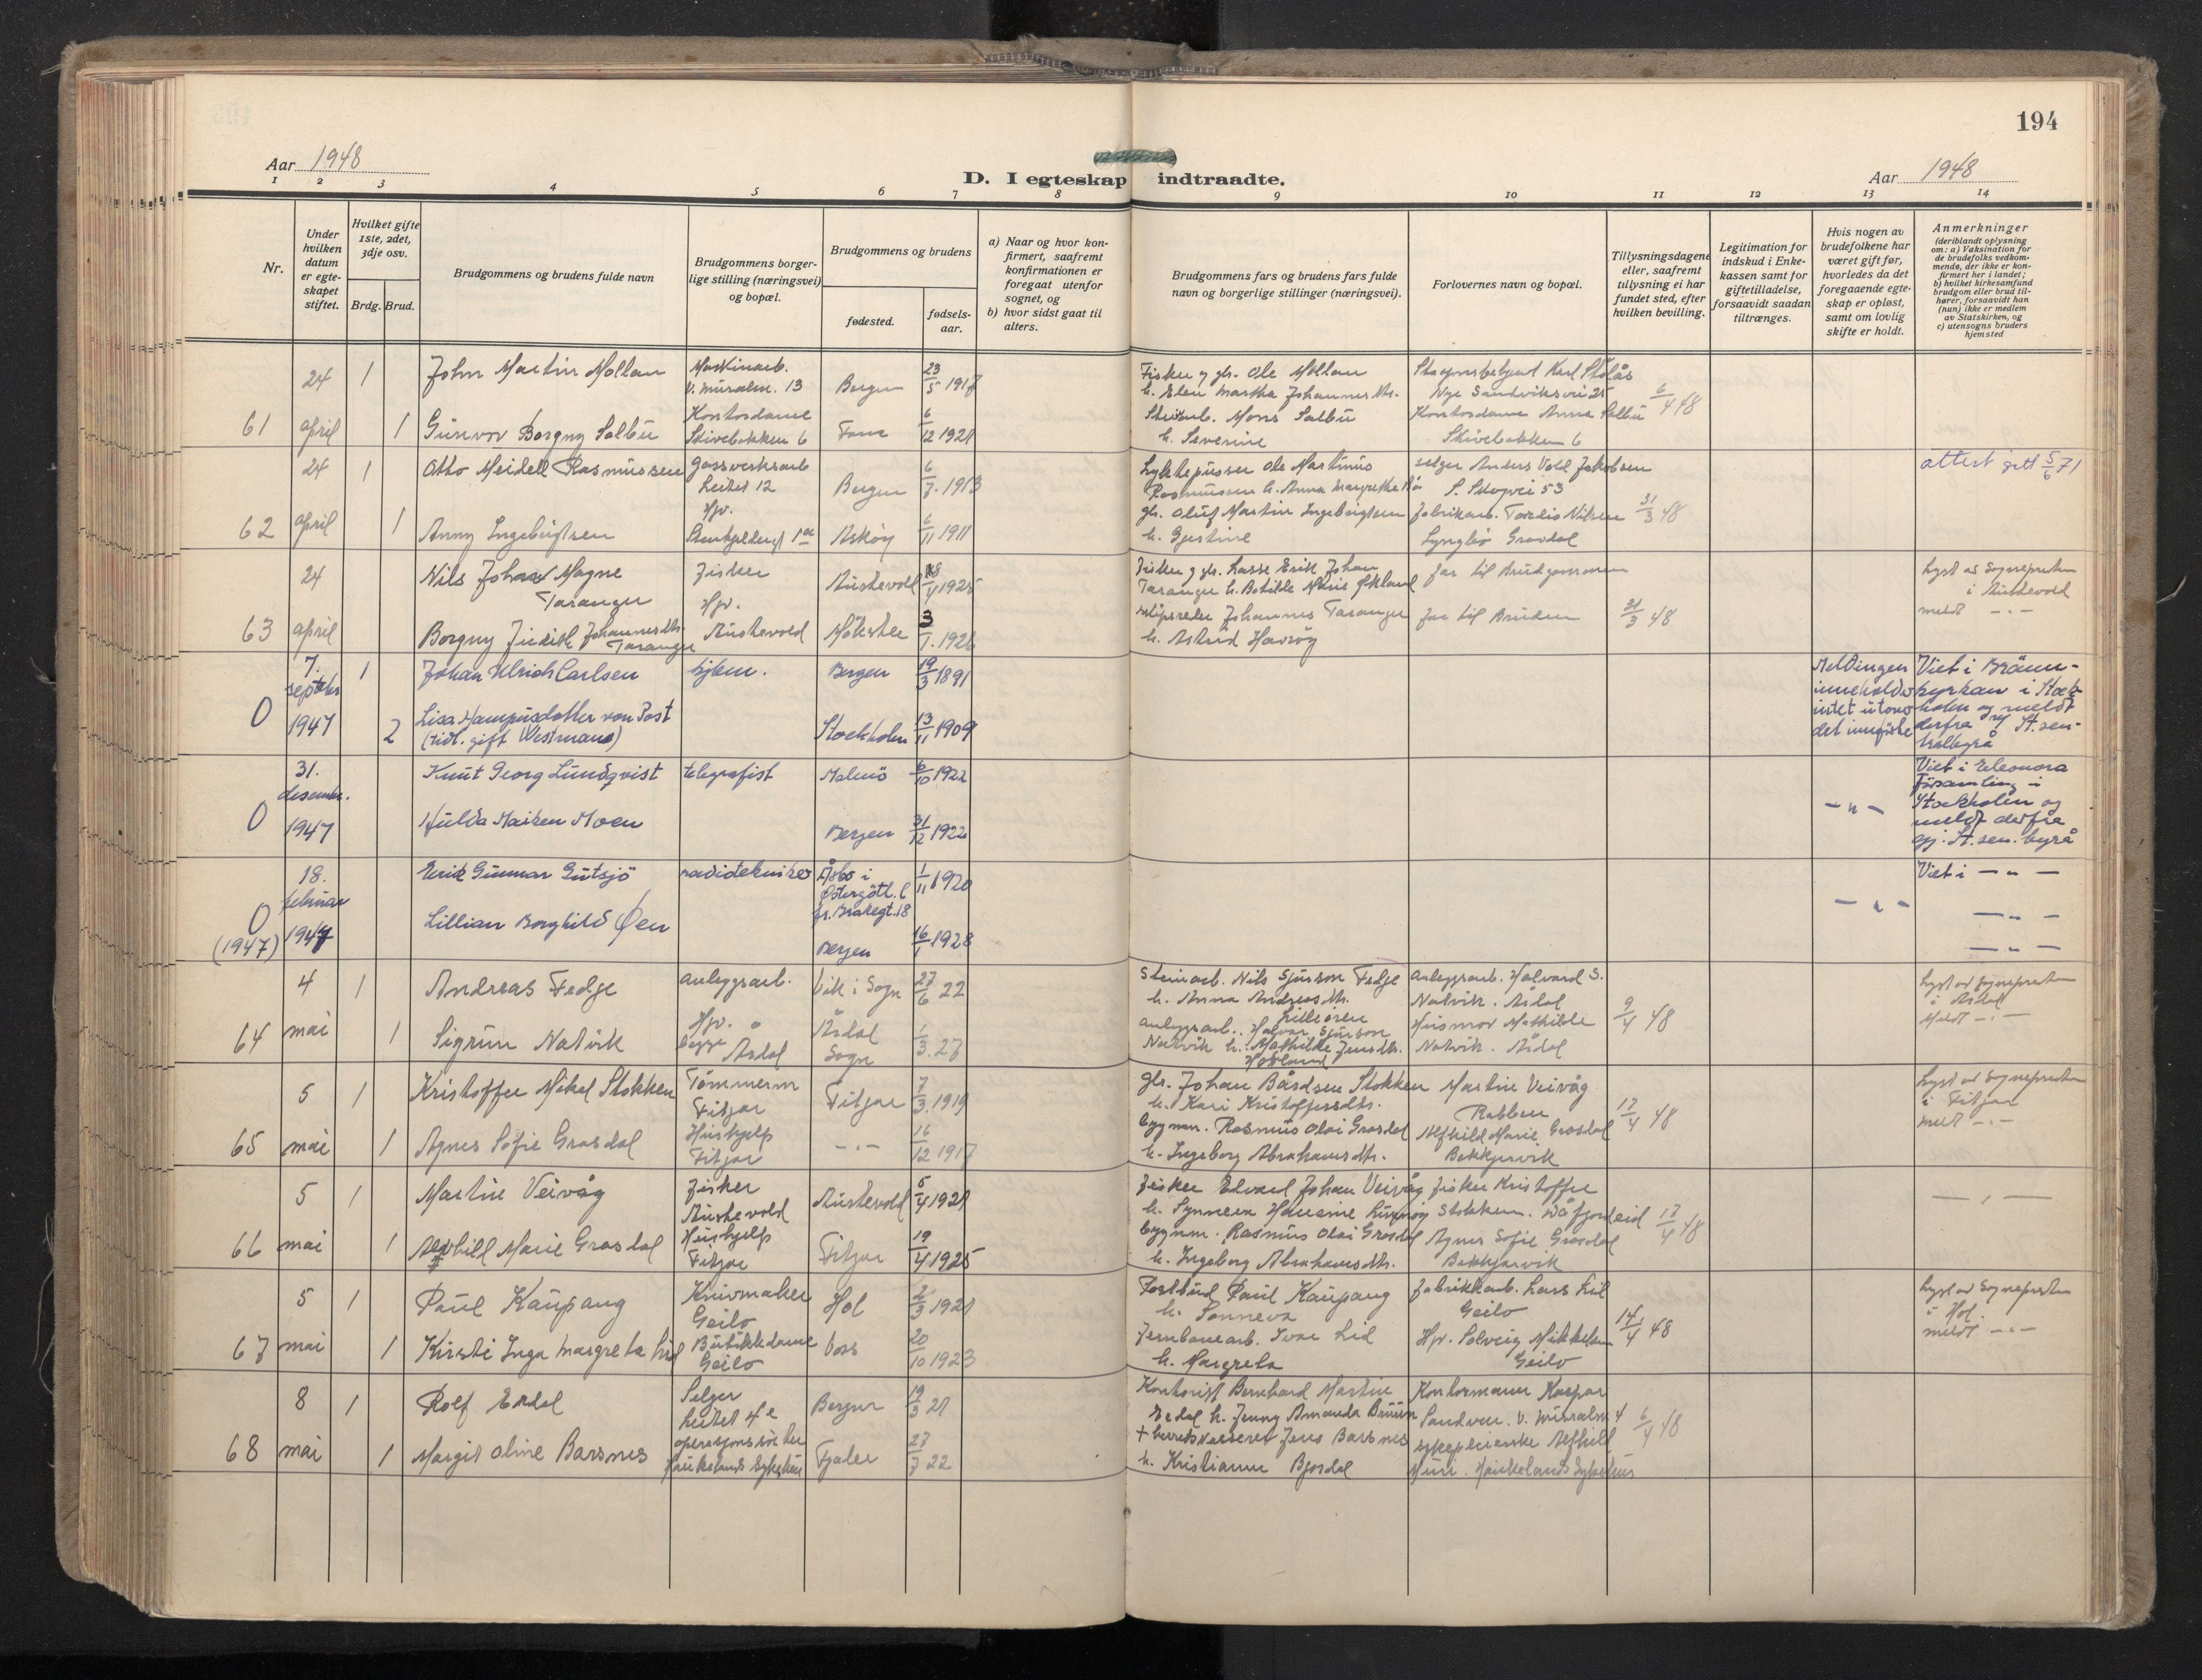 194
Aar 1948
D. I egteskap indtraadte.
Aar 1948
1 2 3 4 5 6 7 8 9 10 11 12 13 14
Nr.
Under hvilken datum er egteskapet stiftet.
Hvilket gifte 1ste, 2det, 3dje osv.
Brdg. Brud.
Brudgommens og brudens fulde navn
Brudgommens borgerlige stilling (næringsvei) og bopæl.
Brudgommens og brudens
fødested.
fødselsaar.
a) Naar og hvor konfirmert, saafremt konfirmationen er foregaat utenfor sognet, og
b) hvor sidst gaat til alters.
Brudgommens fars og brudens fars fulde navn og borgerlige stillinger (næringsvei).
Forlovernes navn og bopæl.
Tillysningsdagene eller, saafremt tillysning ei har fundet sted, efter hvilken bevilling.
Legitimation for indskud i Enkekassen samt for giftetilladelse, forsaavidt saadan tiltrænges.
Hvis nogen av brudefolkene har været gift før, hvorledes da det foregaaende egteskap er opløst, samt om lovlig skifte er holdt.
Anmerkninger
(deriblandt oplysning om: a) Vaksination for de brudefolks vedkommende, der ikke er konfirmert her i landet; b) hvilket kirkesamfund brudgom eller brud tilhører, forsaavidt han (hun) ikke er medlem av Statskirken, og c) utensogns bruders hjemsted
61 24 april
1 John Martin Mollan Maskinarb. V. Muralm. 13 Bergen 23/5 1917
1 Gunvor Borgny Salbu Kontordame Skivebakken 6 Fana 6/12 1921
Fisker og gbr. Ole Mollan
h. Elen Martha Johannesdtr.
Mons Salbu
h. Severine
Karl Stølås
Nye Sandviksvei 25
Kontordame Anna Salbu
Skivebakken 6
6/4 48
62 24 april
1 Otto Meidell Rasmussen Gassverksarb Leitet 12 Bergen 6/7. 1913
1 Anny Ingebrigtsen Hpr. Askøy 6/11 1911
Lyktepusser Ole Martinus
Rasmussen h. Anna Margrethe
gbr. Oluf Martin Ingebrigtsen
h. Gjertine
selger Anders Vold Jakobsen
S. Skogvei 53
fabrikarb. Tordis Nilsen
Lyngbø Gravdal
31/3 48
attest gitt 5/6 71
63 24 april
Nils Johan Magne Taranger Fisker Austevoll 18/4 1925
Borgny Judith Johannesdtr. Taranger Hpr. Austevold Møkster 3/1. 1926
Fisker og gbr. Lasse Erik Johan
Taranger h. Botilde Marie Økland
skipsreder Johannes Taranger
h. Astrid Havrøy
far til Brudgommen
far til Bruden
31/3 48
Lyst av Sognepresten
i Austevold
meldt -"-
0 7. septbr 1947
1 Johan Ulrich Carlsen Bergen 19/3 1891
2 Lisa Hampusdotter von Post
(tidl. gift Westman) Stockholm 13/11 1909
Meldingen
inneholder
intet utover
det innførte
Viet i Bränn-
kyrkan i Stock-
holm og meldt
derfra gj. St. sen-
tralbyrå
0 31. desember. 1947
Knut Georg Lundqvist telegrafist Malmö 6/10 1922
Hulda Maiken Moen Bergen 31/12 1922
- " -
Viet i Eleonora
Församling i
Stockholm og
meldt derfra
gj. St. sen. byrå
0 (1947) 18. februar 1947
Erik Gunnar Gutsjö radiotekniker Åsbo i Östergötl. 1/11 1920
Lillian Borghild Øen Bergen 16/1 1928
- " -
Viet i - " -
- " -
- " -
64 4 mai
1 Andreas Fedge anleggsarb. Vik i Sogn 27/6 22
1 Sigrun Natvik Hpr. Årdal Årdal Sogn 1/3. 27
Steinarb. Nils Sjurson Fedje
h. Anna Andreasdtr.
Lilleøren
anleggsarb. Halvar Sjurson
Natvik h. Mathilde Jensdtr.
Hovland
anleggsarb. Halvard S.
Natvik. Årdal
Husmor Mathilde
Natvik. Årdal
9/4 48
Lyst av Sognepresten
i Årdal
Meldt -"-
65 5 mai
1 Kristoffer Mikal Stokken Tømmerm Fitjar Fitjar 7/3. 1919
1 Agnes Sofie Grasdal Hushjelp Fitjar -"- 16/12 1917
gbr. Johan Bårdsen Stokken
h. Kari Kristoffersdtr.
bygnm. Rasmus Olai Grasdal
h. Ingeborg Abrahamsdtr.
Martin Veivåg
Rabben
Alfhild Marie Grasdal
Bekkjarvik
17/4 48
Lyst av Sognepresten
i Fitjar
meldt -"-
66 5 mai
1 Martin Veivåg Fisker Austevold Austevold 5/4 1921
1 Alfhild Marie Grasdal Hushjelp Fitjar Fitjar 19/4 1925
Fisker Edvard Johan Veivåg
h. Synneva
bygnm. Rasmus Olai Grasdal
h. Ingeborg Abrahamsdtr.
Fisker Kristoffer
Stokken. Våfjordeid
Agnes Sofie Grasdal
Bekkjarvik
17/4 48
- " -
67 5 mai
1 Paul Kaupang Knivmaker Geilo Hol 2/3 1921
1 Kirsti Inga Margreta Lid Butikkdame Geilo Voss 20/10 1923
Postbud Paul Kaupang
h. Sonneva
Jernbanearb. Ivar Lid
h. Margreta
fabrikkarb. Lars Lid
Geilo
Hpr. Solveig Mikkelsen
Geilo
14/4 48
Lyst av Sognepresten
i Hol.
meldt -"-
68 8 mai
1 Rolf Erdal Selger Leitet 4e Bergen 19/3 21
1 Margit Oline Barsnes operasjonssøster Haukelands Sykehus Fjaler 27/7 22
Kontorist Bernhard Martin
Erdal h. Jenny Amanda Bruun
+ herredskasserer Jens Barsnes
h. Kristianne Bjordal
Kontormann Kaspar
Sandven. V. Muralm 4
sykepleierske Alfhild
Muri. Haukelands Sykehus
6/4 48